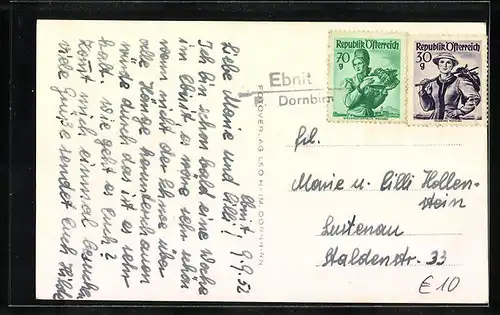 Ebnit, 9.9.52
Liebe Marie und Cilli!
Ich bin schon bald eine Woche
im Ebnit es wäre sehr schön
wenn nicht der Schnee über
alle Hänge herunterschauen
würde doch das ist es sehr
kalt. Wie geht es Euch?
Kommt mich einmal besuchen
Viele Grüße sendet Euch Hilde
FOTOVERLAG LEO HÄM. DORNBIRN
Ebnit
Dornbirn
Republik Österreich
70
g
Republik Österreich
30
g
Frl.
Marie u. Cilli Hollen-
stein
Lustenau
Staldenstr. 33
€ 10